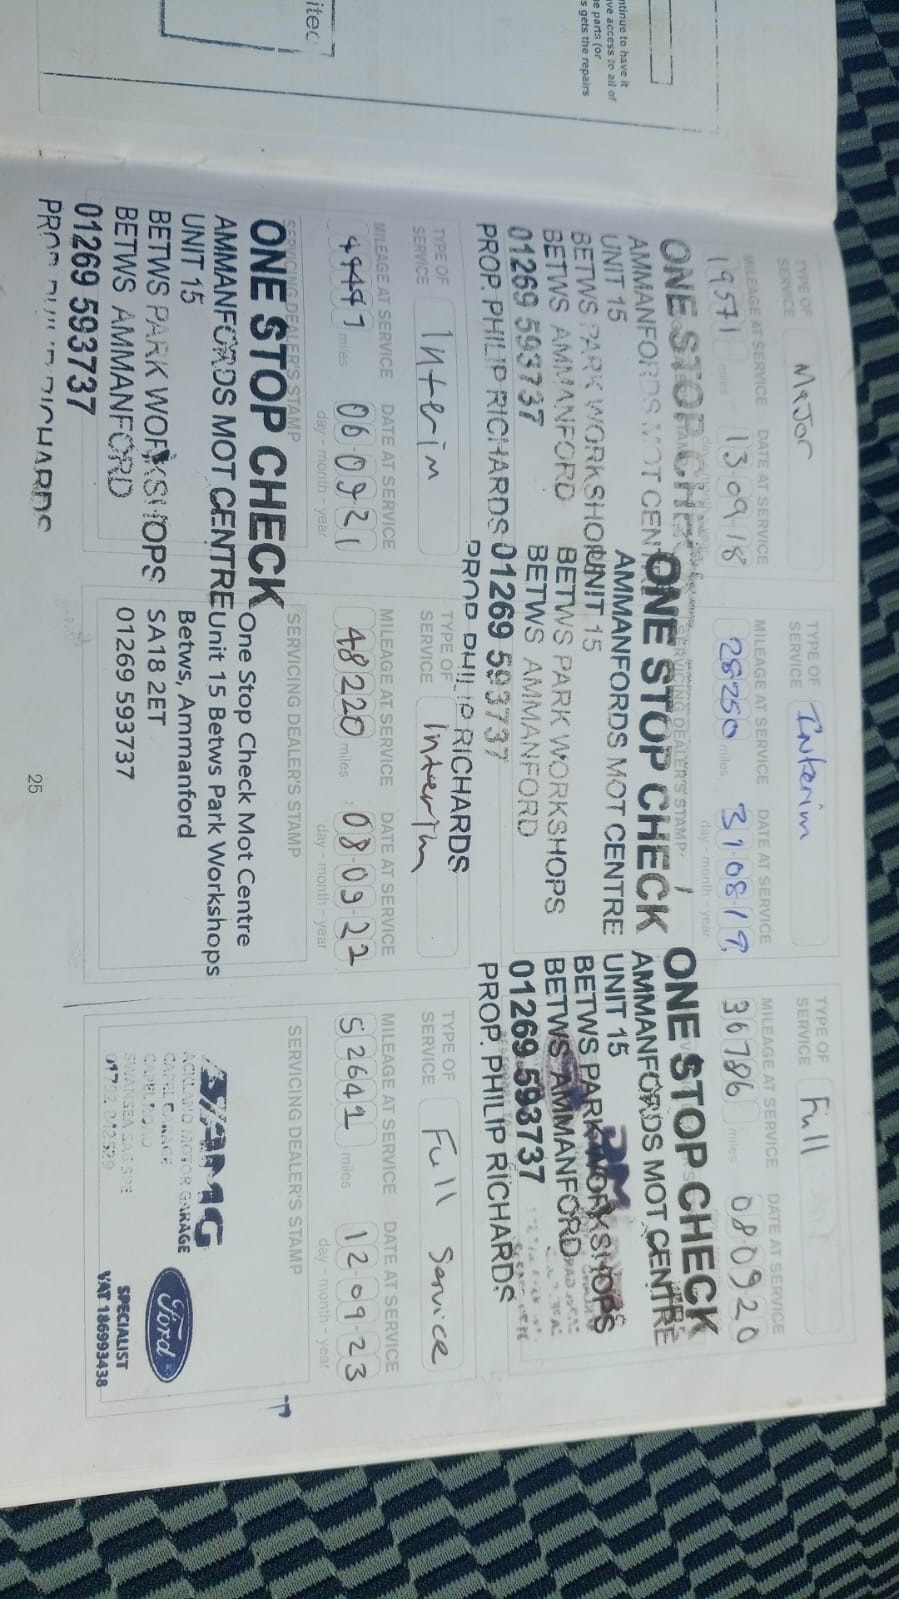 ntinue to have it
ve access to all of
e parts (or
s gets the repairs
itec
TYPE OF SERVICE Major
MILEAGE AT SERVICE DATE AT SERVICE
19571 miles 13 09 18
ONE STOP CHECK
AMMANFORDS MOT CENTRE
UNIT 15
BETWS PARK WORKSHOPS
BETWS AMMANFORD
01269 593737
PROP. PHILIP RICHARDS
TYPE OF SERVICE Interim
MILEAGE AT SERVICE DATE AT SERVICE
28250 miles 31 08 19
day - month - year
SERVICING DEALER'S STAMP
ONE STOP CHECK
AMMANFORDS MOT CENTRE
UNIT 15
BETWS PARK WORKSHOPS
BETWS AMMANFORD
01269 593737
PROP. PHILIP RICHARDS
TYPE OF SERVICE Full
MILEAGE AT SERVICE DATE AT SERVICE
36786 miles 08 09 20
ONE STOP CHECK
AMMANFORDS MOT CENTRE
UNIT 15
BETWS PARK WORKSHOPS
BETWS AMMANFORD
01269 593737
PROP. PHILIP RICHARDS
TYPE OF SERVICE Interim
MILEAGE AT SERVICE DATE AT SERVICE
miles 06 09 21
day - month - year
SERVICING DEALER'S STAMP
ONE STOP CHECK
AMMANFORDS MOT CENTRE
UNIT 15
BETWS PARK WORKSHOPS
BETWS AMMANFORD
01269 593737
PROP. PHILIP RICHARDS
TYPE OF SERVICE Interim
MILEAGE AT SERVICE DATE AT SERVICE
48220 miles 08 09 22
day - month - year
SERVICING DEALER'S STAMP
One Stop Check Mot Centre
Unit 15 Betws Park Workshops
Betws, Ammanford
SA18 2ET
01269 593737
TYPE OF SERVICE Full Service
MILEAGE AT SERVICE DATE AT SERVICE
52641 miles 12 09 23
day - month - year
SERVICING DEALER'S STAMP
MOTOR GARAGE
Ford
SPECIALIST
VAT 186993438
25